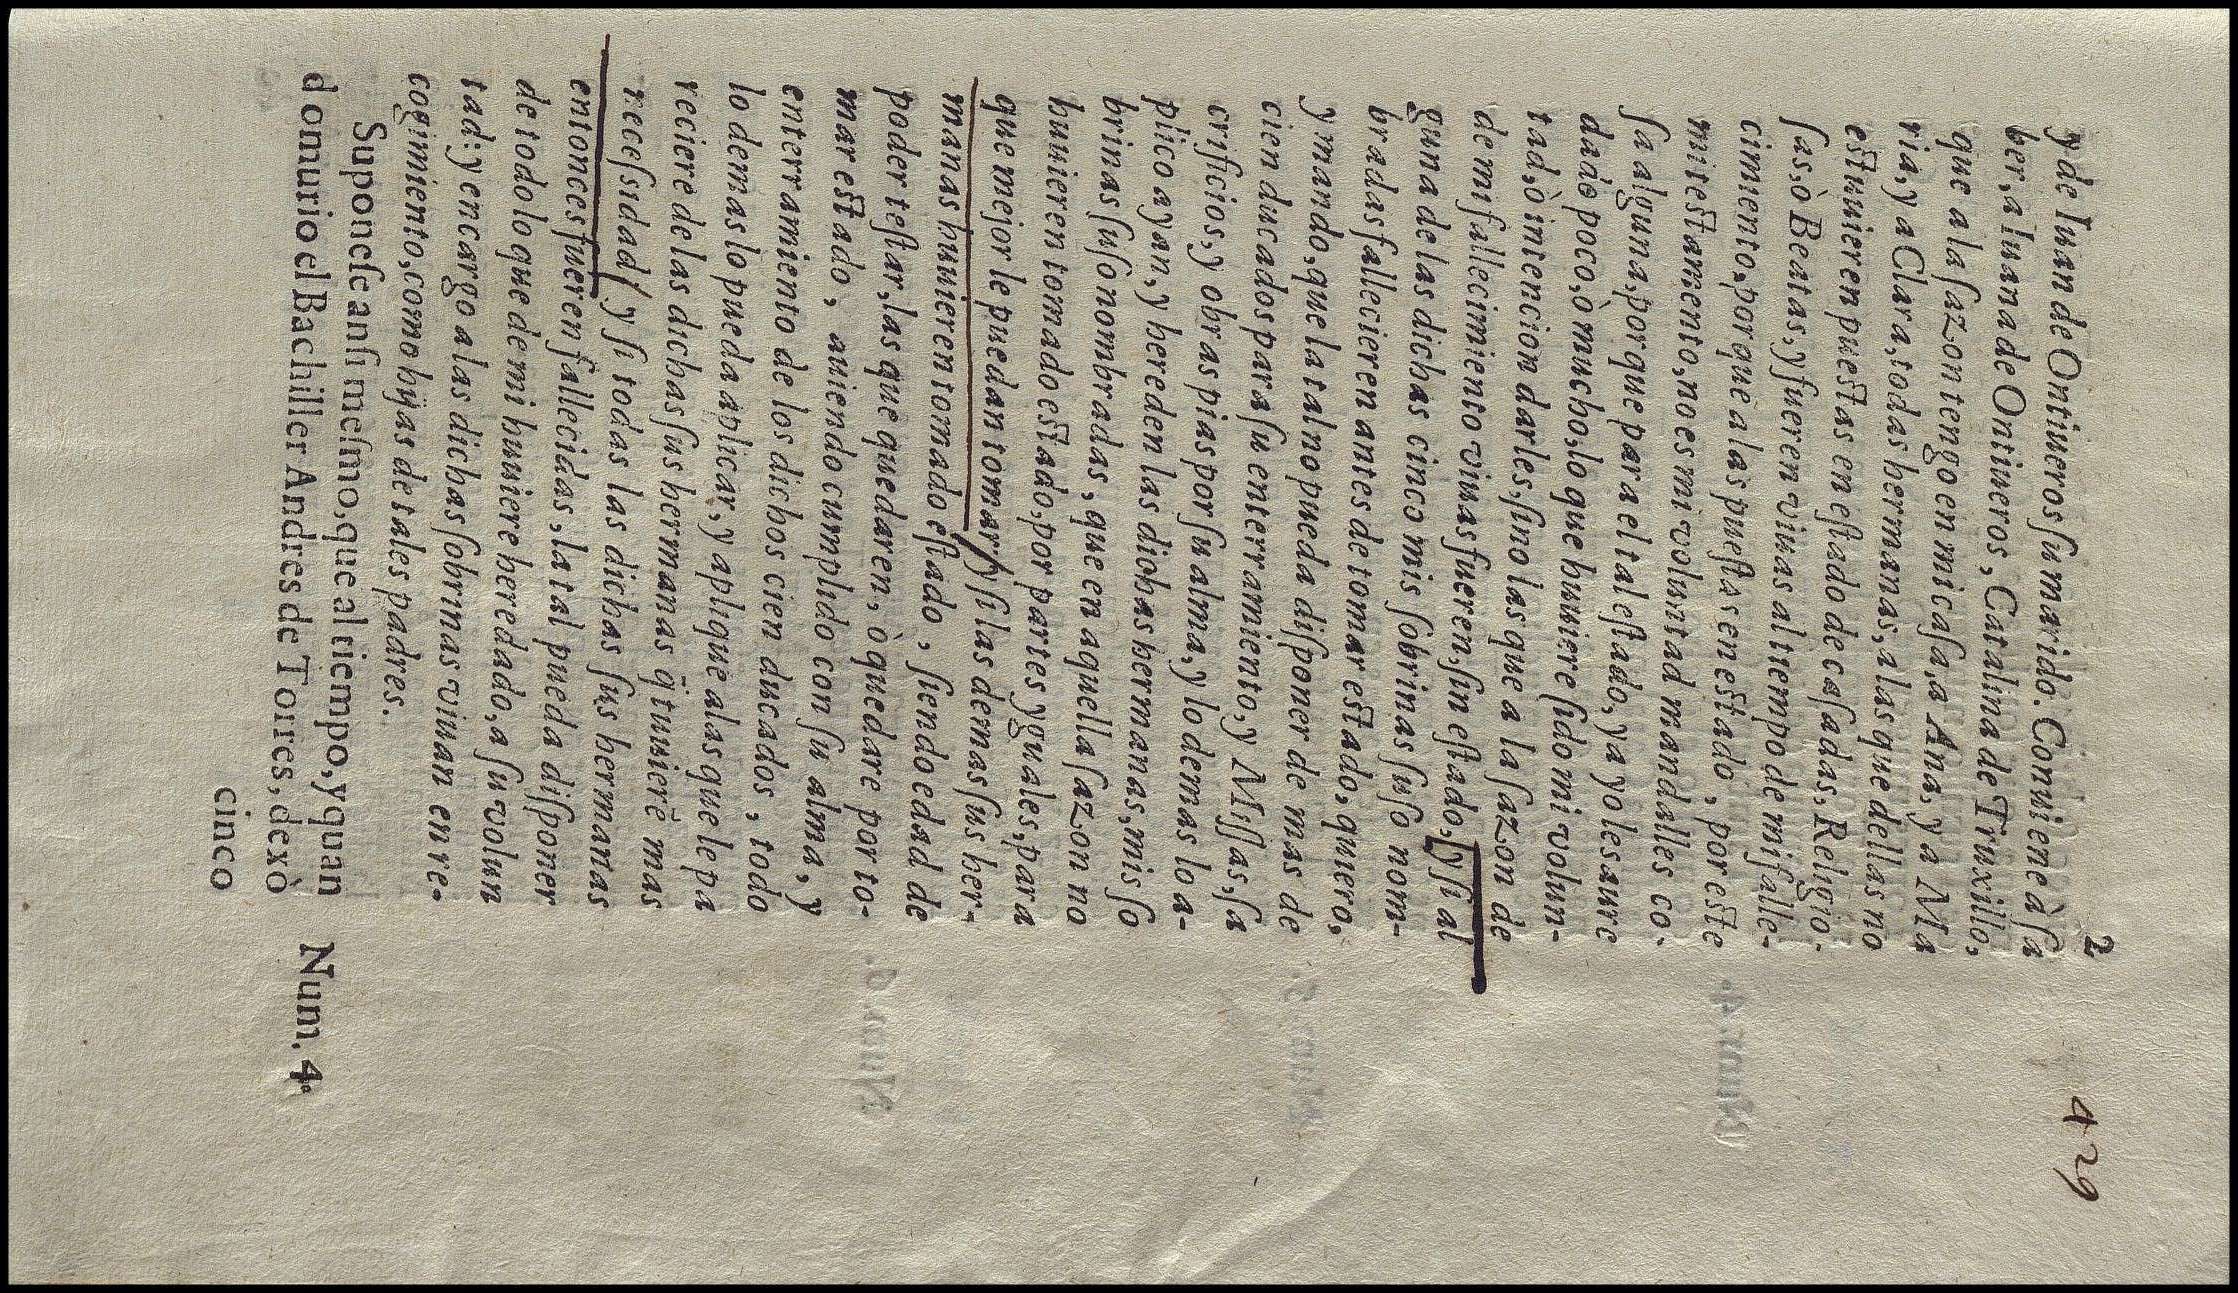 2
429
y de Iuan de Ontiueros ſu marido. Conuiene à ſa
ber, a Iuana de Ontiueros, Catalina de Truxillo,
que a la ſazon tengo en mi caſa, a Ana, y a Ma
ria, y a Clara, todas hermanas, a las que dellas no
eſtuuieren pueſtas en eſtado de caſadas, Religio-
ſas, ò Beatas, y fueren viuas al tiempo de mi falle-
cimiento, porque a las pueſtas en eſtado, por eſte
mi teſtamento, no es mi voluntad mandalles co-
ſa alguna, porque para el tal eſtado, ya yo les aure
dado poco, ò mucho, lo que huuiere ſido mi volun-
tad, ò intencion darles, ſino las que a la ſazon de
de mi fallecimiento viuas fueren, ſin eſtado, [y ſi al
guna de las dichas cinco mis ſobrinas ſuſo nom-
bradas fallecieren antes de tomar eſtado, quiero,
y mando, que la tal no pueda diſponer de mas de
cien ducados para ſu enterramiento, y Miſſas, ſa
crificios, y obras pias por ſu alma, y lo demas lo a-
plico ayan, y hereden las dichas hermanas, mis ſo
brinas ſuſo nombradas, que en aquella ſazon no
huuieren tomado eſtado, por partes yguales, para
que mejor le puedan tomar / y ſi las demas ſus her-
manas huuieren tomado eſtado, ſiendo edad de
poder teſtar, las que quedaren, ò quedare por to-
mar eſtado, auiendo cumplido con ſu alma, y
enterramiento de los dichos cien ducados, todo
lo demas lo pueda aplicar, y aplique a las que le pa
reciere de las dichas ſus hermanas q̃ tuuierẽ mas
neceſsidad / y ſi todas las dichas ſus hermanas
entonces fueren fallecidas, la tal pueda diſponer
de todo lo que de mi huuiere heredado, a ſu volun
tad: y encargo a las dichas ſobrinas viuan en re-
cogimiento, como hijas de tales padres.
Suponeſe anſi meſmo, que al tiempo, y quan
do murio el Bachiller Andres de Torres, dexò
Num. 4.
cinco